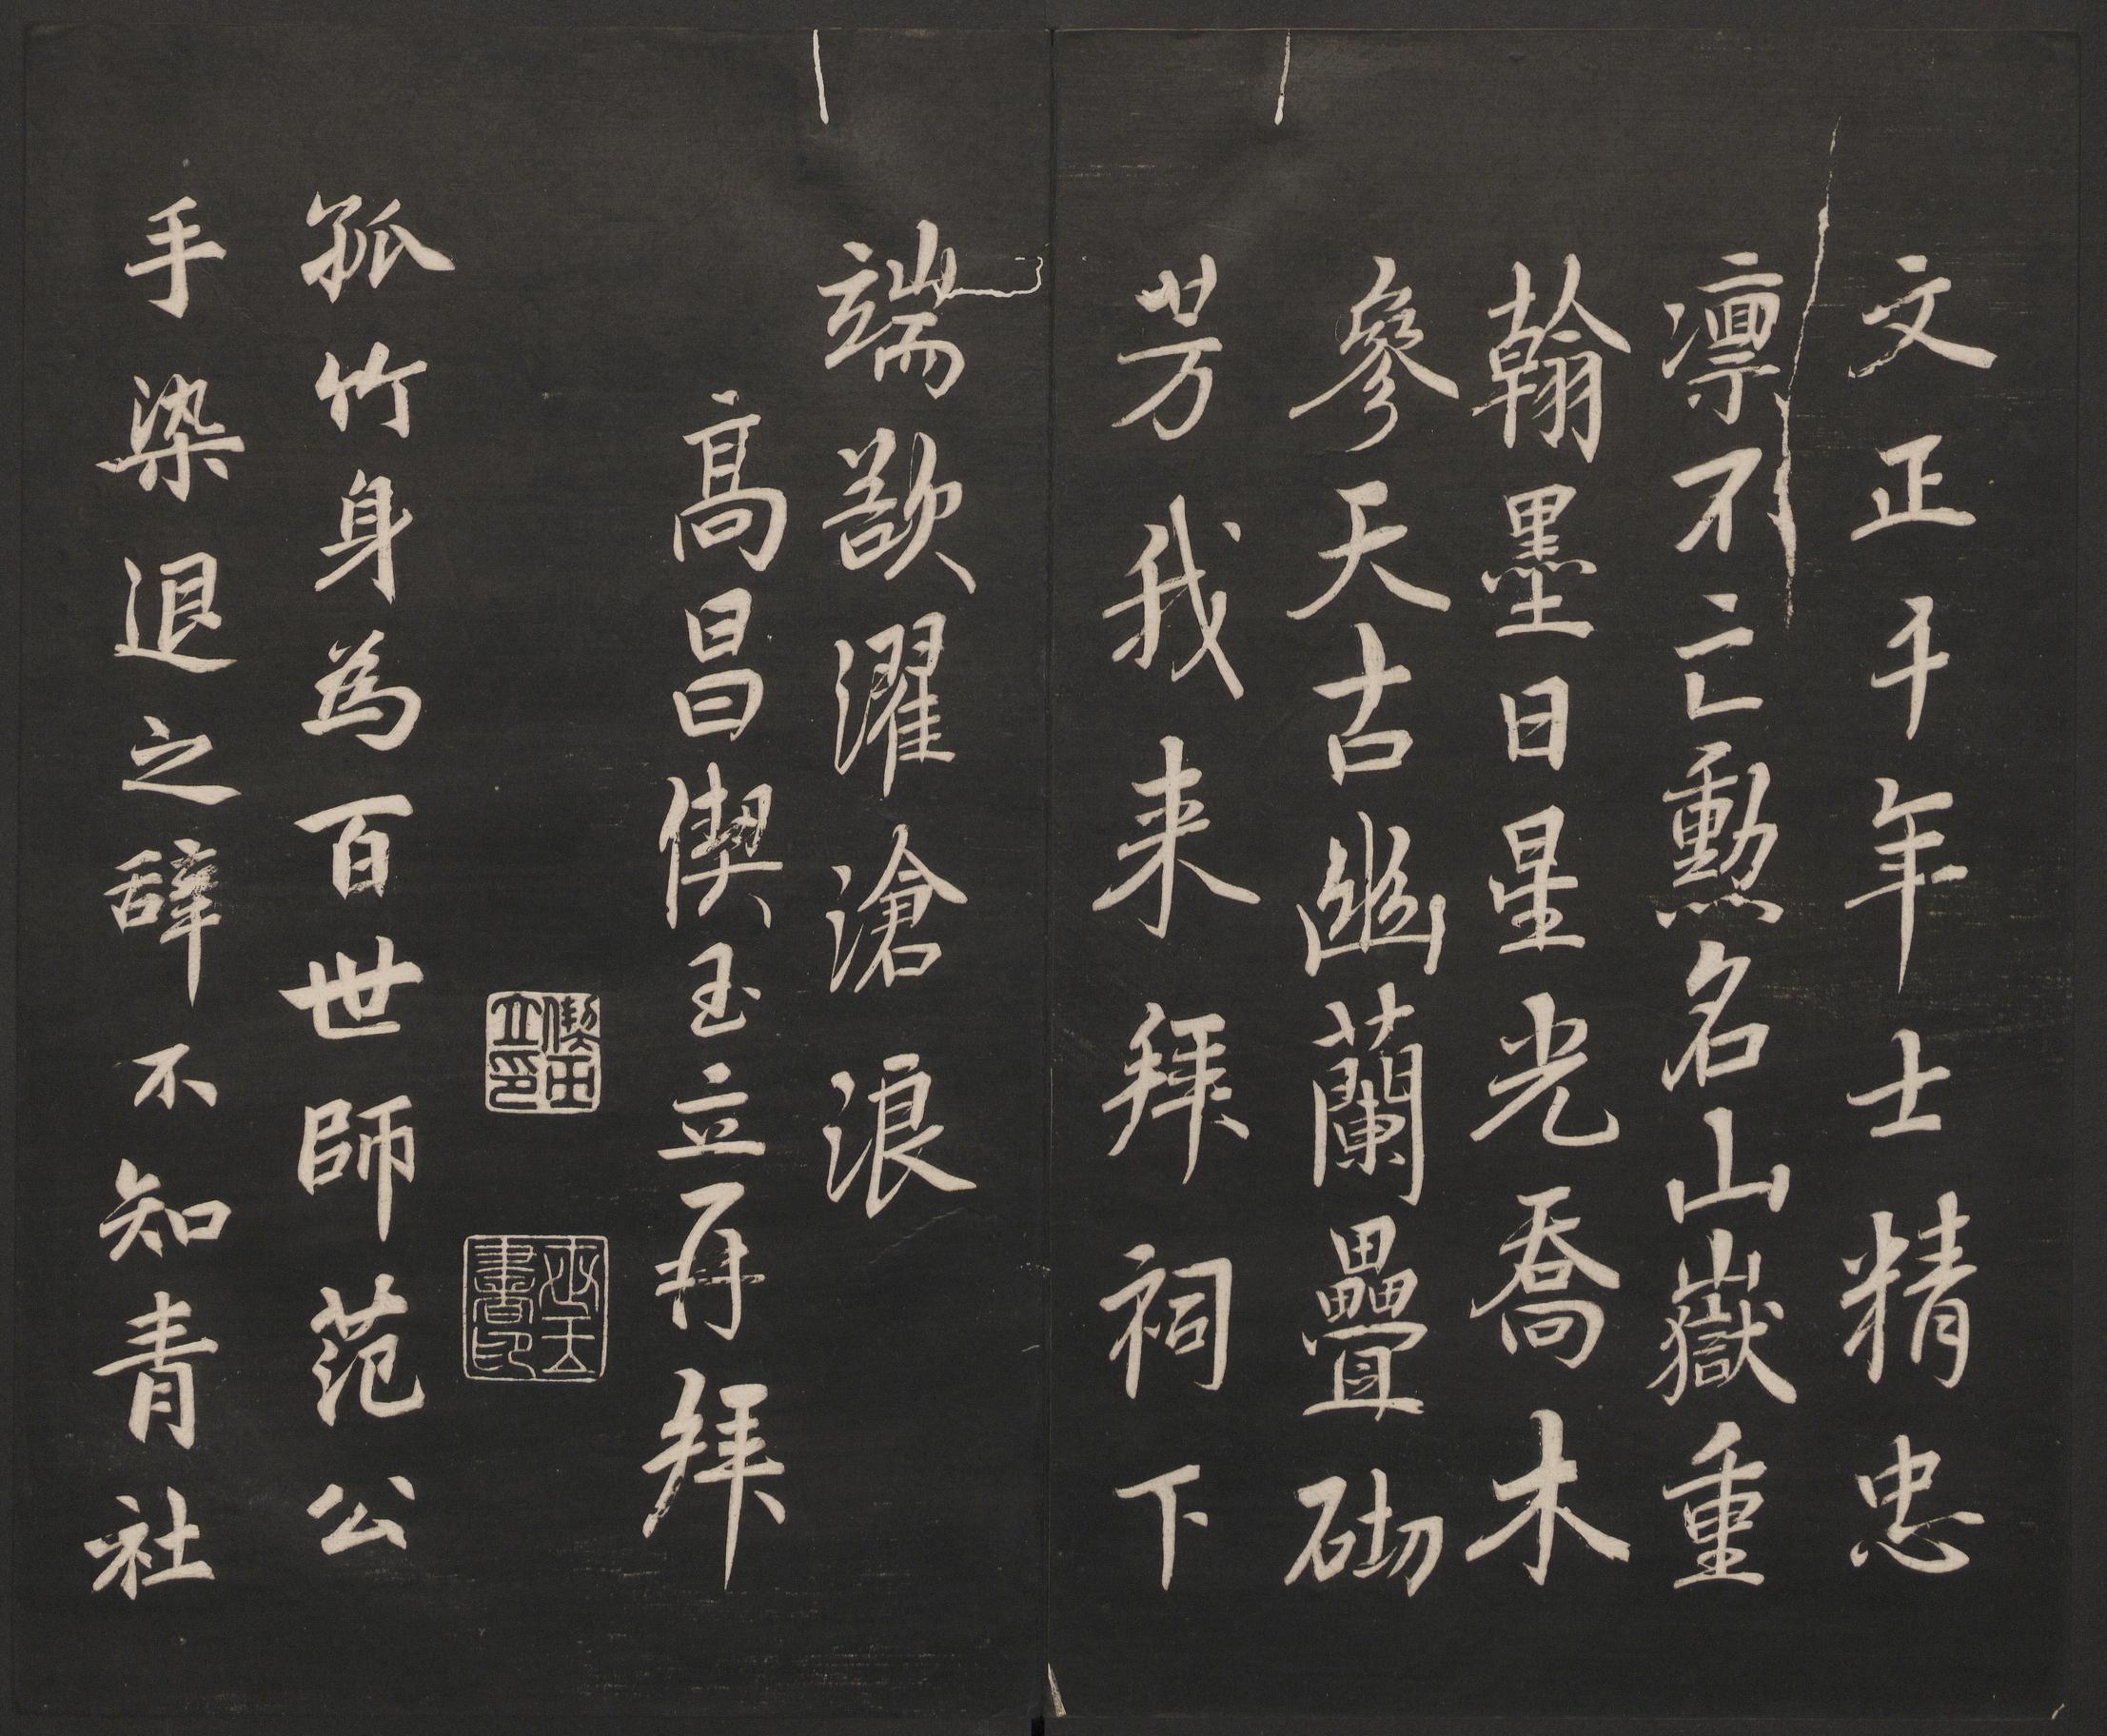 文正千年士精忠
凛不亡勳名山嶽重
翰墨日星光喬木
參天古幽蘭疊砌
芳我来拜祠下
端欲濯滄浪
高昌偰玉立再拜
偰玉立印
書印
孤竹身為百世師范公
手染退之辞不知青社